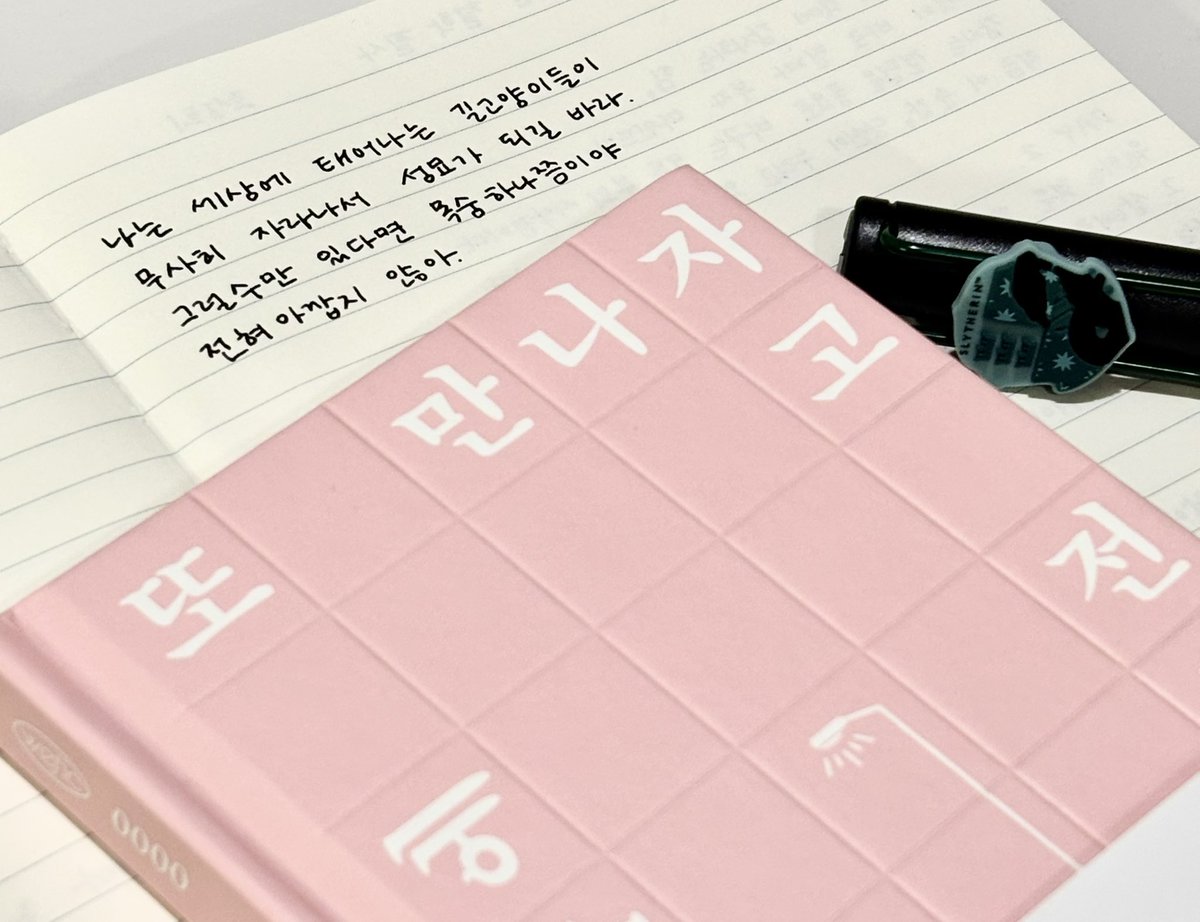 나는 세상에 태어나는 길고양이들이
무사히 자라나서 성묘가 되길 바라.
그럴수만 있다면 목숨하나쯤이야
전혀 아깝지 않아.
또 만나자
고 전
흥
0000
SLYTHERIN™